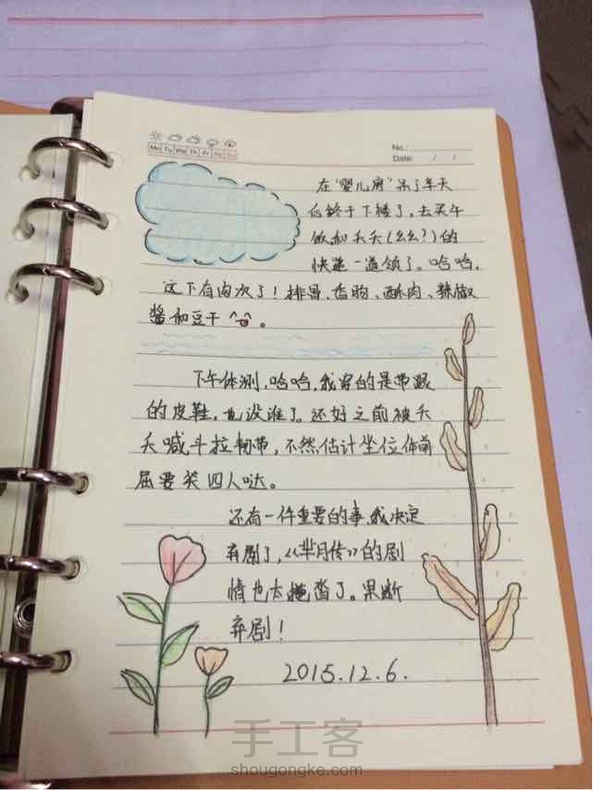 Mo Tu We Th Fr Sa Su
No.:
Date: / /
在"婴儿房"呆了半天
后终于下楼了，去买午
饭和夭夭(幺幺?)的
快递一道领了。哈哈，
这下有肉吃了！排骨、香肠、酥肉、辣椒
酱和豆干 。
下午体测，哈哈，我穿的是带跟
的皮鞋，也没谁了。还好之前被夭
夭喊斗拉韧带，不然估计坐位体前
屈要笑四人哒。
还有一件重要的事，我决定
弃剧了，《芈月传》的剧
情也太 了。果断
弃剧！
2015.12.6.
手工客
shougongke.com